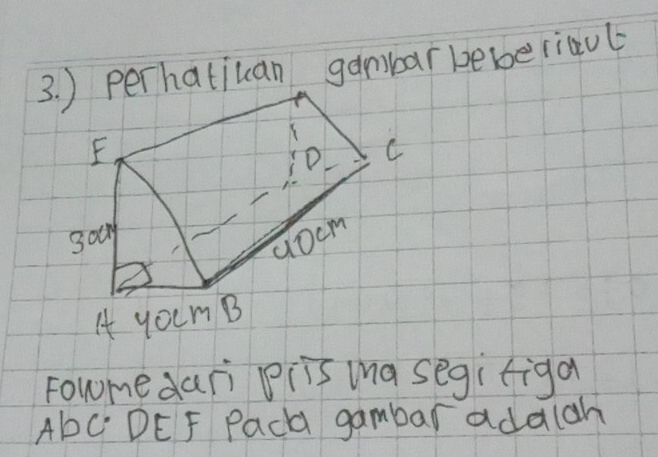 3.) perhatikan gambar beberikut
E
D
C
30cm
40cm
A 40cm B
Fowme dari prisma segitiga
AbC DEF Pada gambar adalah